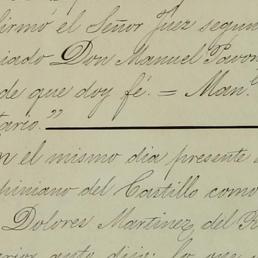 firmo el Señor Juez segun
ciado Don Manuel Pavon
de que doy fé. = Man.
tario."
En el mismo dia presente
piniano del Castillo como
Dolores Martinez, del R